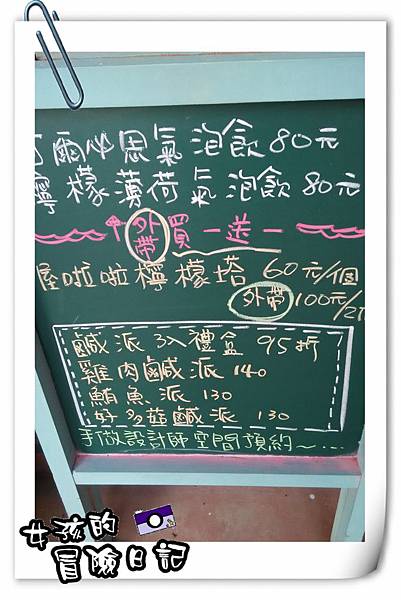 爾必思氣泡飲 80元
檸檬薄荷氣泡飲 80元
外帶 買一送一
屋啦啦檸檬塔 60元/個
外帶 100元/2
鹹派 3入禮盒 95折
雞肉鹹派 140
鮪魚派 130
好多菇鹹派 130
手做設計師空間預約~...
女孩的
冒險日記